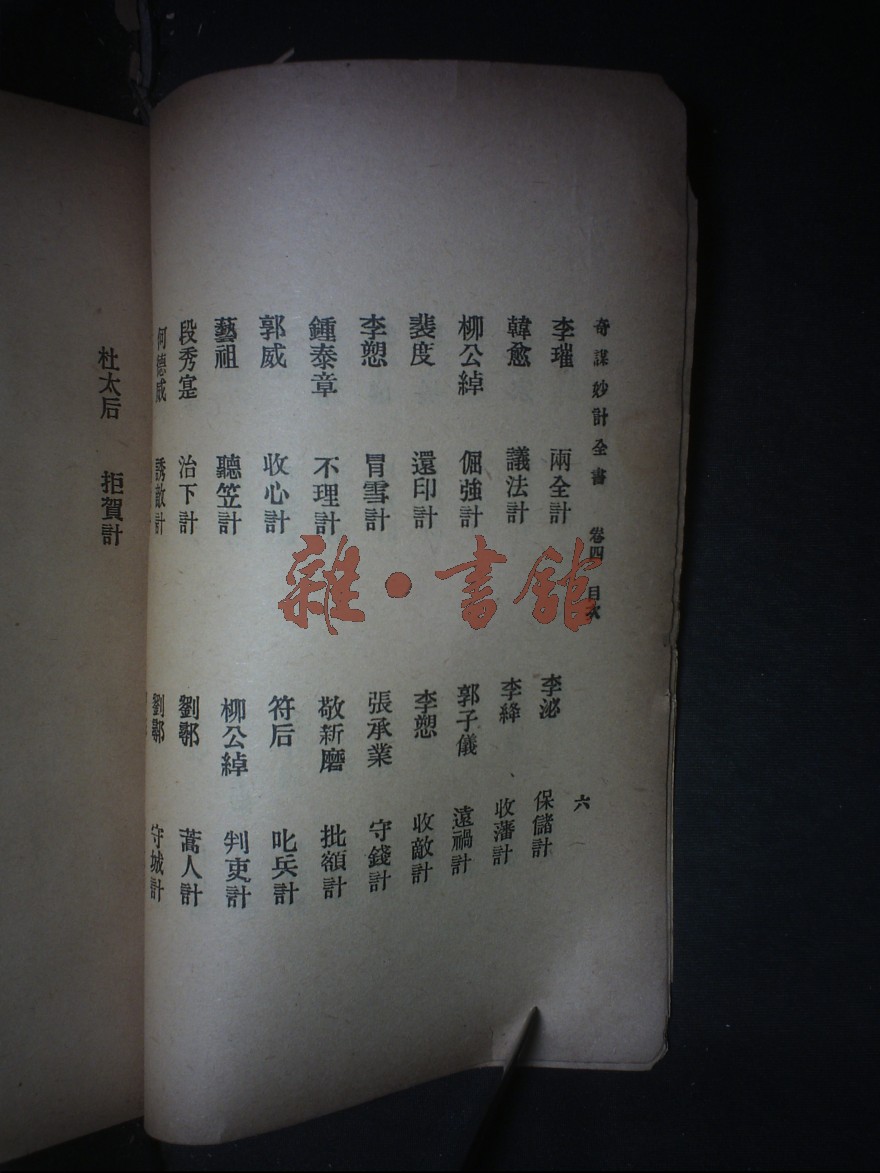 奇謀妙計全書 卷四 目次 六
李璀 兩全計 李泌 保儲計
韓愈 議法計 李絳 收藩計
柳公綽 倔強計 郭子儀 遠禍計
裴度 還印計 李愬 收敵計
李愬 冒雪計 張承業 守錢計
鍾泰章 不理計 敬新磨 批額計
郭威 收心計 符后 叱兵計
藝祖 聽笠計 柳公綽 判吏計
段秀寔 治下計 劉鄩 蒿人計
何德威 誘敵計 劉鄩 守城計
杜太后 拒賀計
雜·書館